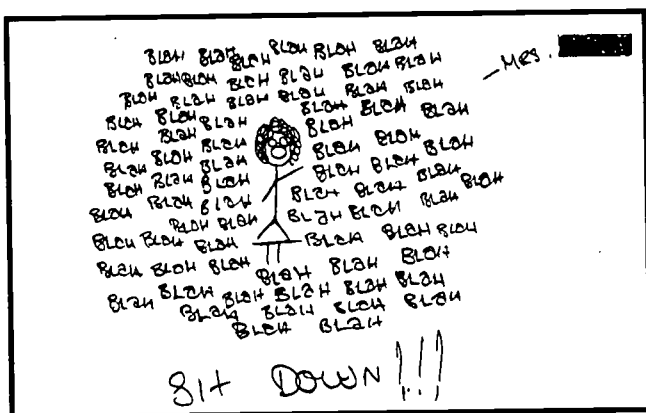 BLAH BLAH BLAH BLAH BLAH
BLAH BLAH BLAH BLAH BLAH BLAH BLAH
BLAH BLAH BLAH BLAH BLAH BLAH
BLAH BLAH BLAH BLAH BLAH
BLAH BLAH BLAH BLAH
BLAH BLAH BLAH BLAH BLAH
BLAH BLAH BLAH BLAH BLAH BLAH
BLAH BLAH BLAH BLAH BLAH BLAH
BLAH BLAH BLAH BLAH BLAH BLAH
BLAH BLAH BLAH BLAH BLAH BLAH
BLAH BLAH BLAH BLAH BLAH
BLAH BLAH BLAH BLAH BLAH BLAH
BLAH BLAH BLAH BLAH BLAH
BLAH BLAH BLAH BLAH
BLAH BLAH
MRS.
SIT DOWN!!!